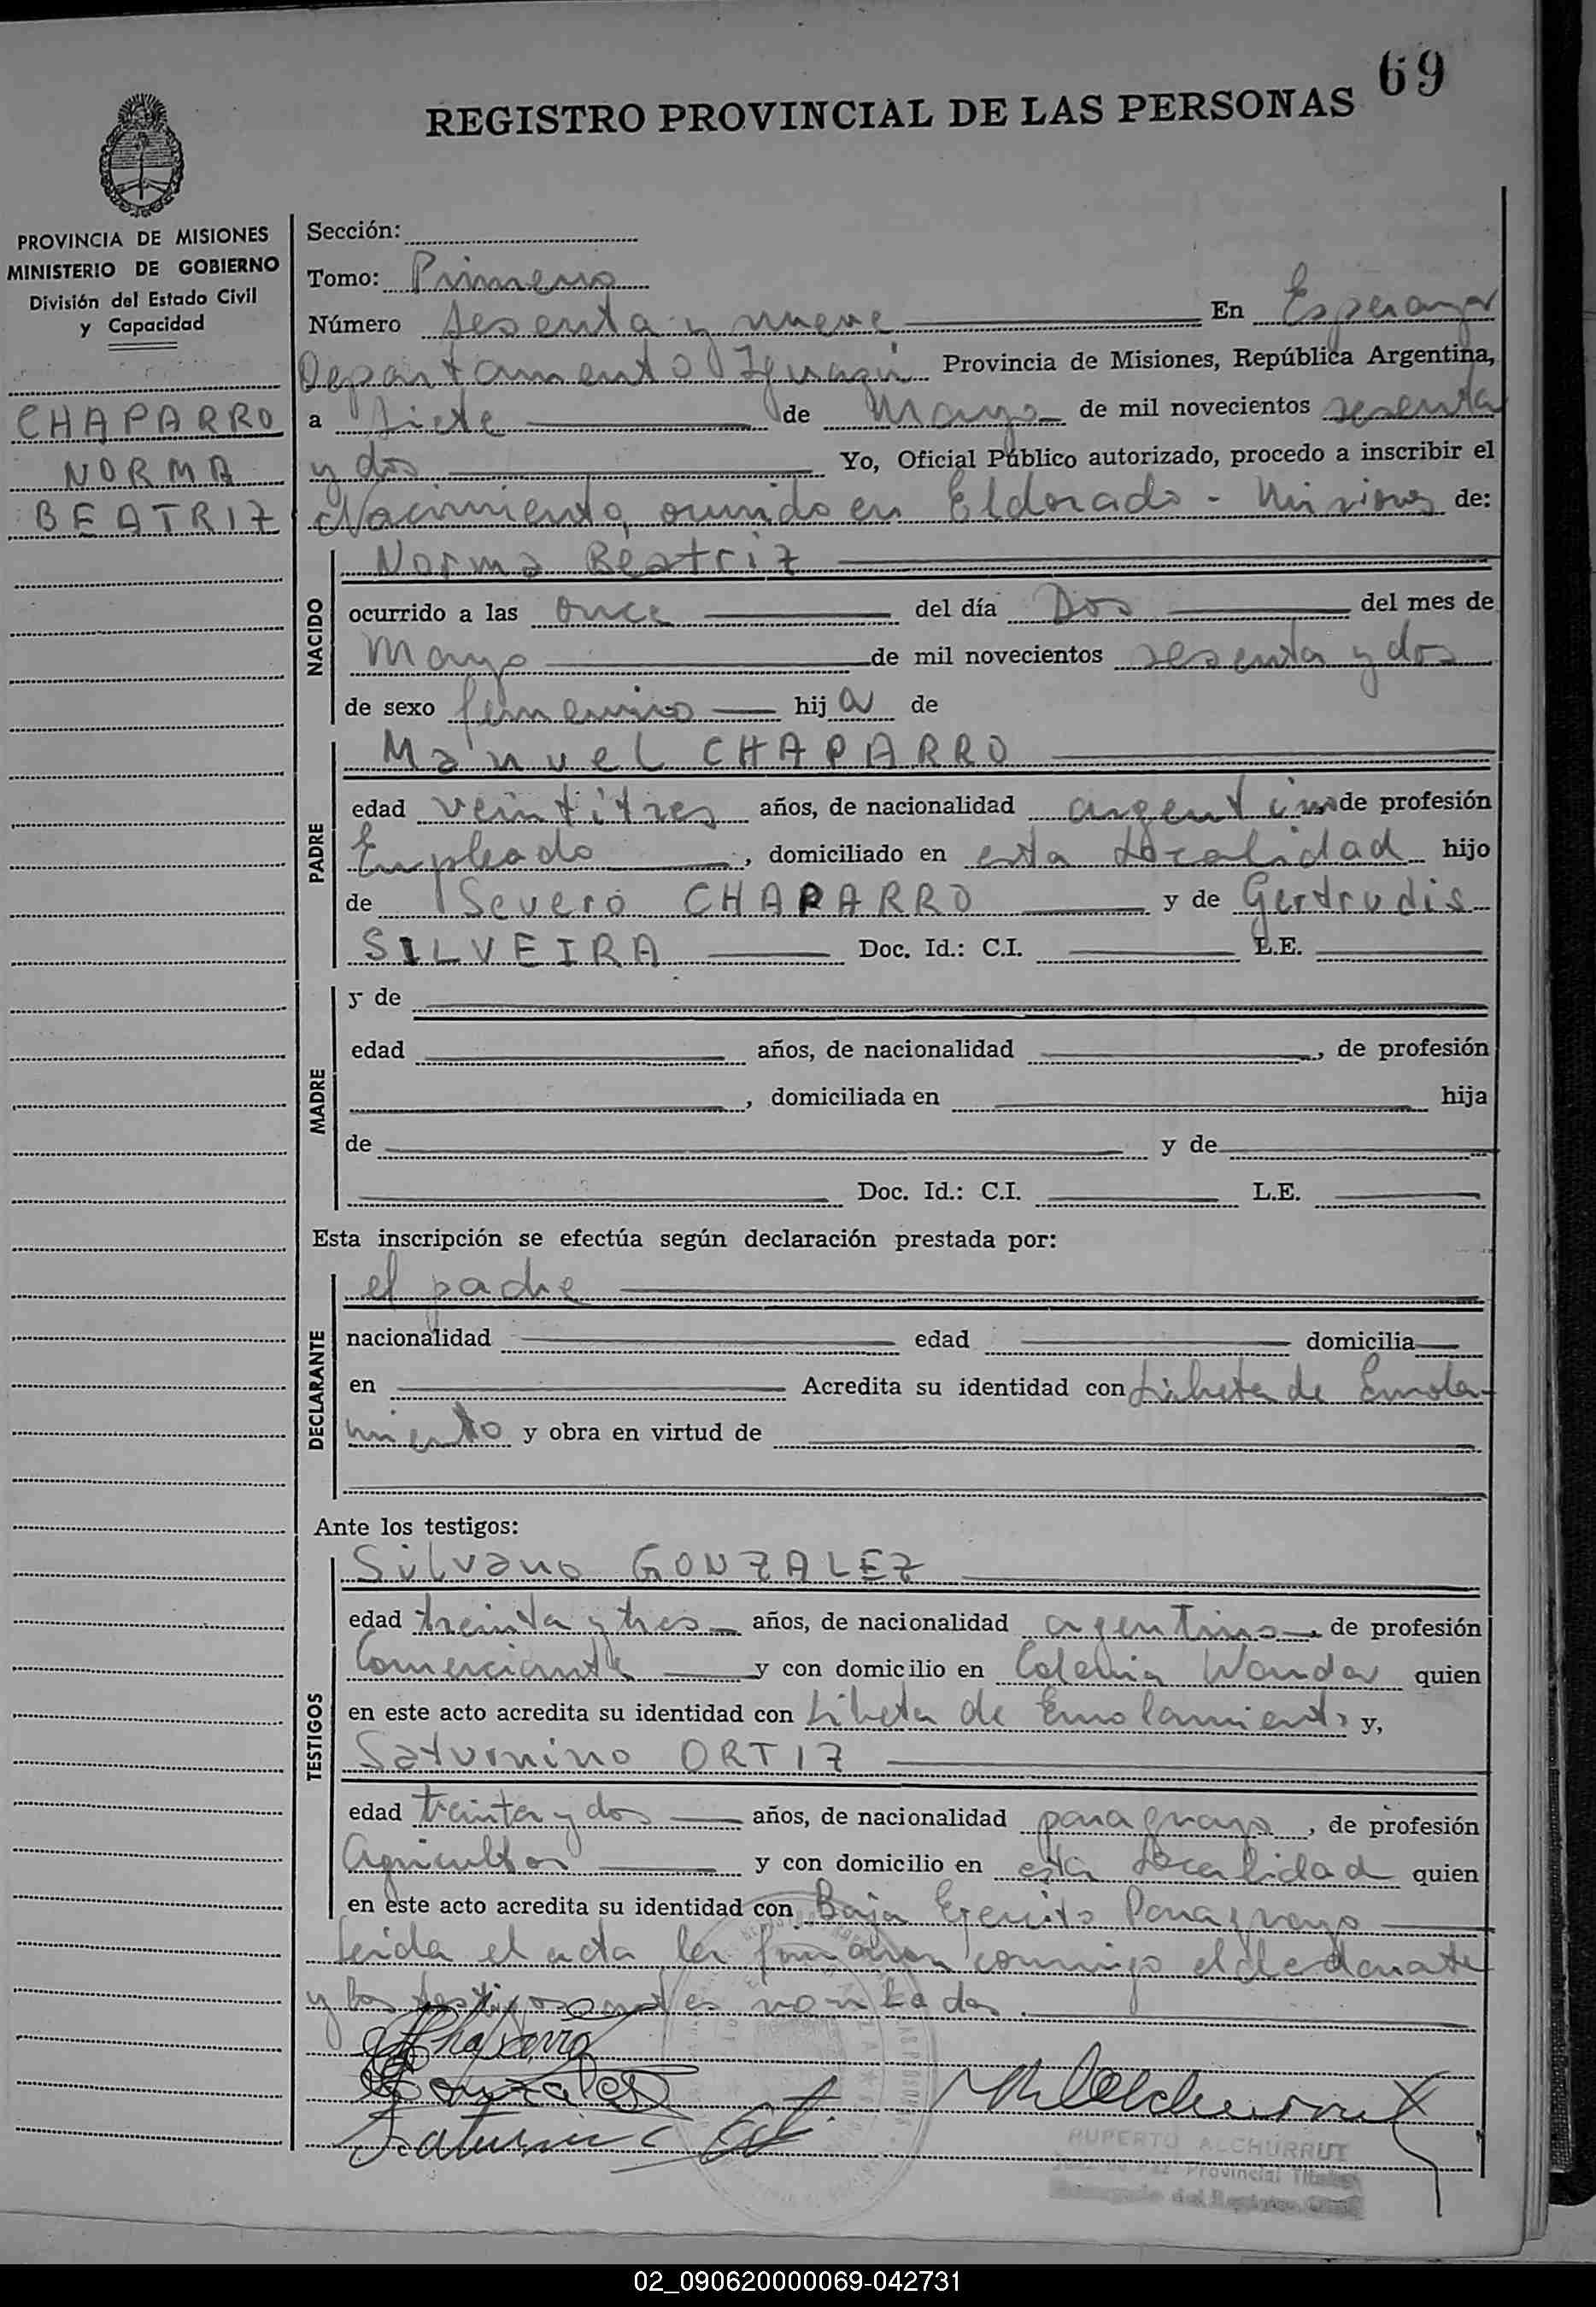 69
REGISTRO PROVINCIAL DE LAS PERSONAS
PROVINCIA DE MISIONES
MINISTERIO DE GOBIERNO
División del Estado Civil
y Capacidad
CHAPARRO
NORMA
BEATRIZ
Sección:
Tomo: Primero
Número sesenta y nueve En Esperanza
Departamento Iguazú Provincia de Misiones, República Argentina,
a siete de Mayo de mil novecientos sesenta
y dos Yo, Oficial Público autorizado, procedo a inscribir el
Nacimiento, ocurrido en Eldorado - Misiones de:
NACIDO
Norma Beatriz
ocurrido a las once del día Dos del mes de
Mayo de mil novecientos sesenta y dos
de sexo femenino hija de
PADRE
Manuel CHAPARRO
edad veintitres años, de nacionalidad argentino de profesión
Empleado, domiciliado en esta Localidad hijo
de Severo CHAPARRO y de Gertrudis
SILVEIRA Doc. Id.: C.I. L.E.
MADRE
y de
edad años, de nacionalidad , de profesión
, domiciliada en hija
de y de
Doc. Id.: C.I. L.E.
Esta inscripción se efectúa según declaración prestada por:
DECLARANTE
el padre
nacionalidad edad domicilia
en Acredita su identidad con Libreta de Enrola-
miento y obra en virtud de
Ante los testigos:
TESTIGOS
Silvano GONZALEZ
edad treinta y tres años, de nacionalidad argentino, de profesión
Comerciante y con domicilio en Colonia Wanda quien
en este acto acredita su identidad con Libreta de Enrolamiento y,
Saturnino ORTIZ
edad treinta y dos años, de nacionalidad paraguayo, de profesión
Agricultor y con domicilio en esta Localidad quien
en este acto acredita su identidad con Baja Ejercito Paraguayo
Leida el acta la firmaron conmigo el declarante
y los testigos antes nombrados.
Chaparro
Gonzales
Saturnino
RUPERTO ALCHURRUT
Juez de Paz Provincial Titular
Encargado del Registro Civil
02_090620000069-042731